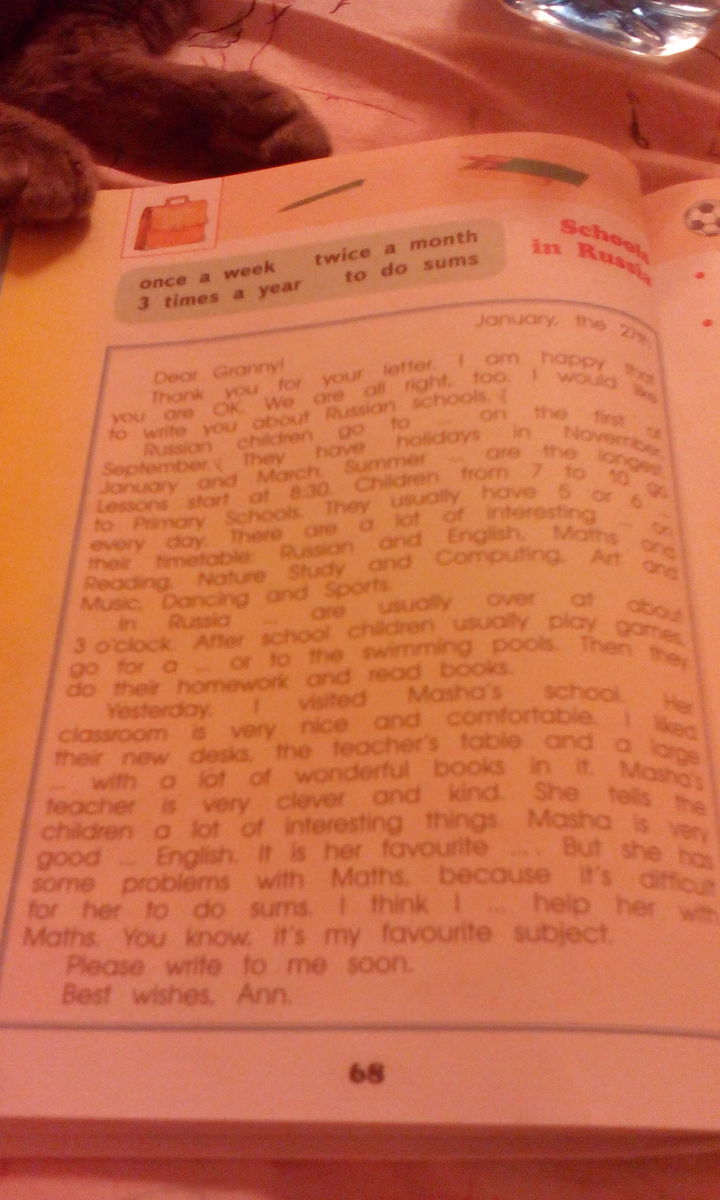 Schools
in Russia
once a week twice a month
3 times a year to do sums
January, the 27th
Dear Granny!
Thank you for your letter. I am happy that
you are OK. We are all right, too. I would like
to write you about Russian schools.
Russian children go to ... on the first of
September. They have holidays in November,
January and March. Summer ... are the longest.
Lessons start at 8:30. Children from 7 to 10 go
to Primary Schools. They usually have 5 or 6 ...
every day. There are a lot of interesting ... on
their timetable: Russian and English, Maths and
Reading, Nature Study and Computing, Art and
Music, Dancing and Sports.
In Russia ... are usually over at about
3 o'clock. After school children usually play games,
go for a ... or to the swimming pools. Then they
do their homework and read books.
Yesterday, I visited Masha's school. Her
classroom is very nice and comfortable. I liked
their new desks, the teacher's table and a large
... with a lot of wonderful books in it. Masha's
teacher is very clever and kind. She tells the
children a lot of interesting things. Masha is very
good ... English. It is her favourite ... . But she has
some problems with Maths, because it's difficult
for her to do sums. I think I ... help her with
Maths. You know, it's my favourite subject.
Please write to me soon.
Best wishes, Ann.
68